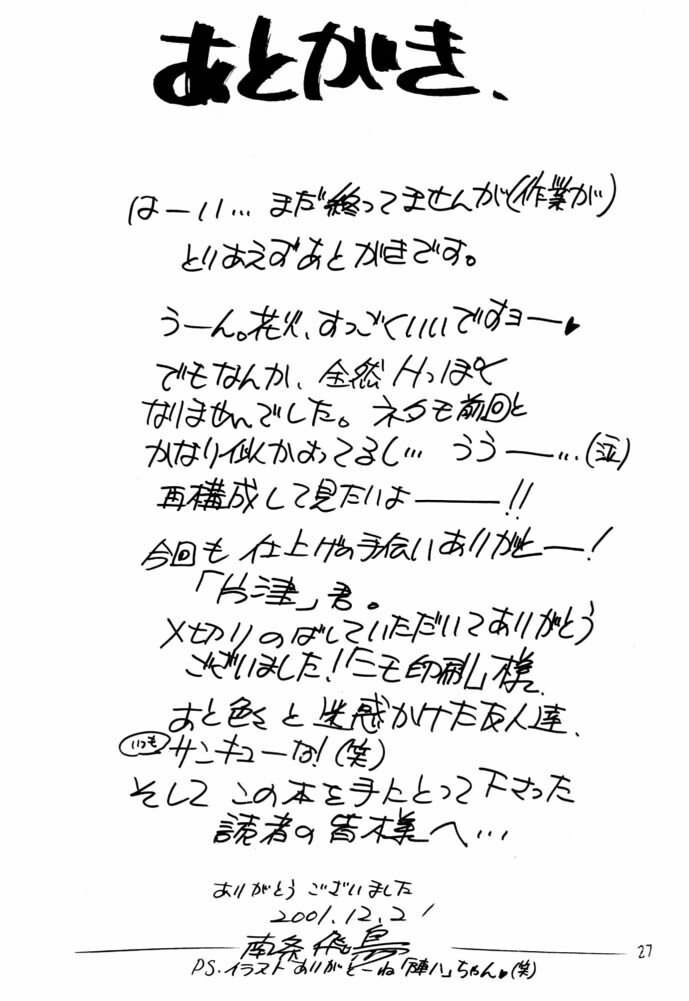 あとがき、
はーい… まだ終ってませんが(作業が)
とりあえずあとがきです。
うーん。花火、すっごくいいですョー♥
でもなんか、全然Hっぽく
なりませんでした。ネタも前回と
かなり似かよってるし… うう——…(泣)
再構成して見たいよ———!!
今回も仕上げの手伝いありがとー!
「片津」君。
〆切りのばしていただいてありがとう
ございました!「ニモ印刷」様、
あと色々と迷惑かけた友人達、
いつも サンキューな!(笑)
そして この本を手にとって下さった
読者の皆様へ…
ありがとうございました
2001.12.21
南条飛鳥
27
P.S.イラストありがとーね「陣八」ちゃん♥(笑)